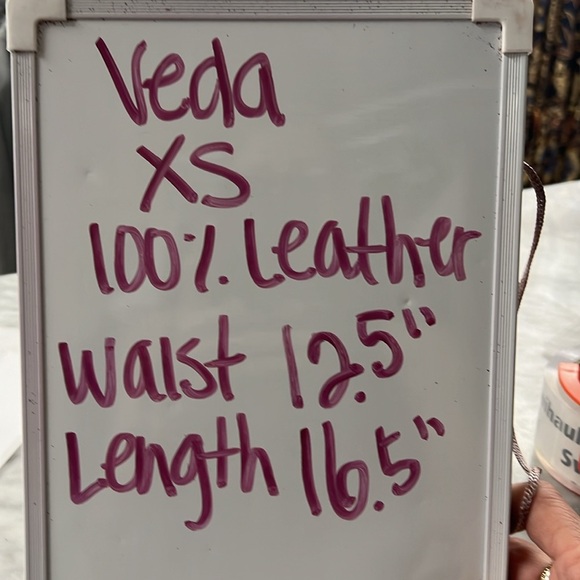 Veda
XS
100% Leather
Waist 12.5"
Length 16.5"